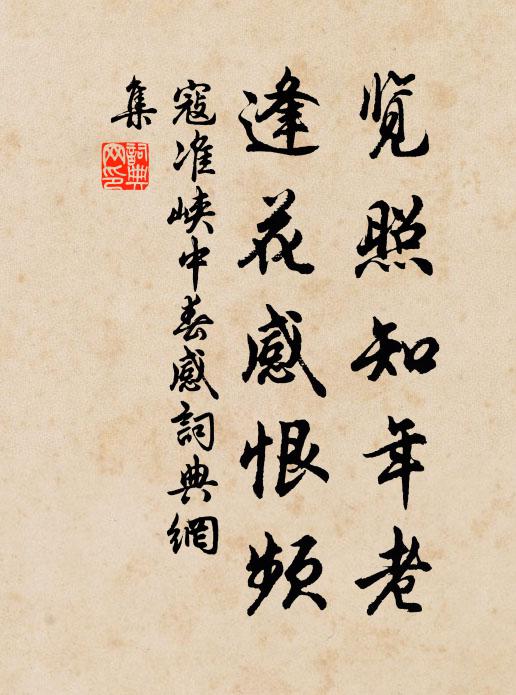 览照知年老
逢花感恨频
寇准峡中春感詞典網
集
詞典
网印